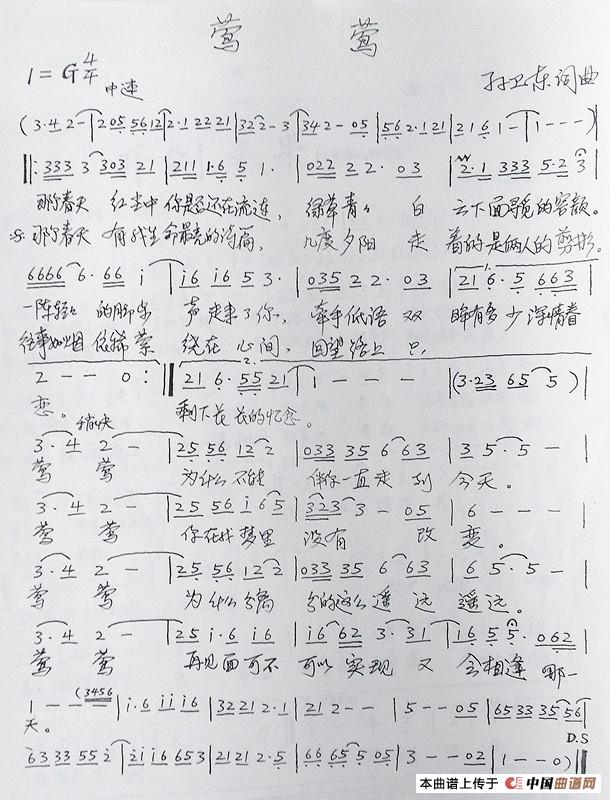 莺 莺
1=G 4/4 中速
孙卫东词曲
(3·4 2-|2 05 56 12|2·1 22 21|32 2-3|34 2-05|56 2·1 21|21 6 1-|1---)
‖:333 3 303 21|211 1·6 5 1·|022 22·03|2·1 333 5·2 3|
那个春天 红尘中 你是否还在流连, 绿草青青 白 云下面寻觅的容颜。
𝄋 那个春天 有我生命最亮的诗篇, 几度夕阳 走 着的是俩人的剪影。
6666 6·66 i|i6 i6 5 3·|035 22·03|21 6·5 663|
一阵轻轻 的脚步 声走来了你, 牵手低语 双 眸有多少深情眷
往事如烟 依稀萦 绕在心间, 回望路上 只
2--0:‖21 6·55 21|1---|(3·23 65 5)|
恋。 剩下长长的怀念。
稍快
3·4 2-|25 56 12 2|033 35 6 63|3 5·5-|
莺 莺 为什么不能 伴你一直走到 今天。
3·4 2-|25 56 i 6 5|323 3-05|6---|
莺 莺 你在我梦里 没有 改 变。
3·4 2-|25 56 12 2|033 35 6 63|6 5·5-|
莺 莺 为什么分离 分的这么遥远 遥远。
3·4 2-|25 i·6 i6|i6 62 3·31|16 5 5·062|
莺 莺 再见面可不 可以实现 又 会相逢 哪一
1--(3456|i·6 ii i6|3222·1|212--|5--05|65 33 35 56|
天。
D.S
63 33 55 2|2i i6 65 3|21 21 2·5|66 65 5 05|3--02|1--0)‖
本曲谱上传于 中国曲谱网